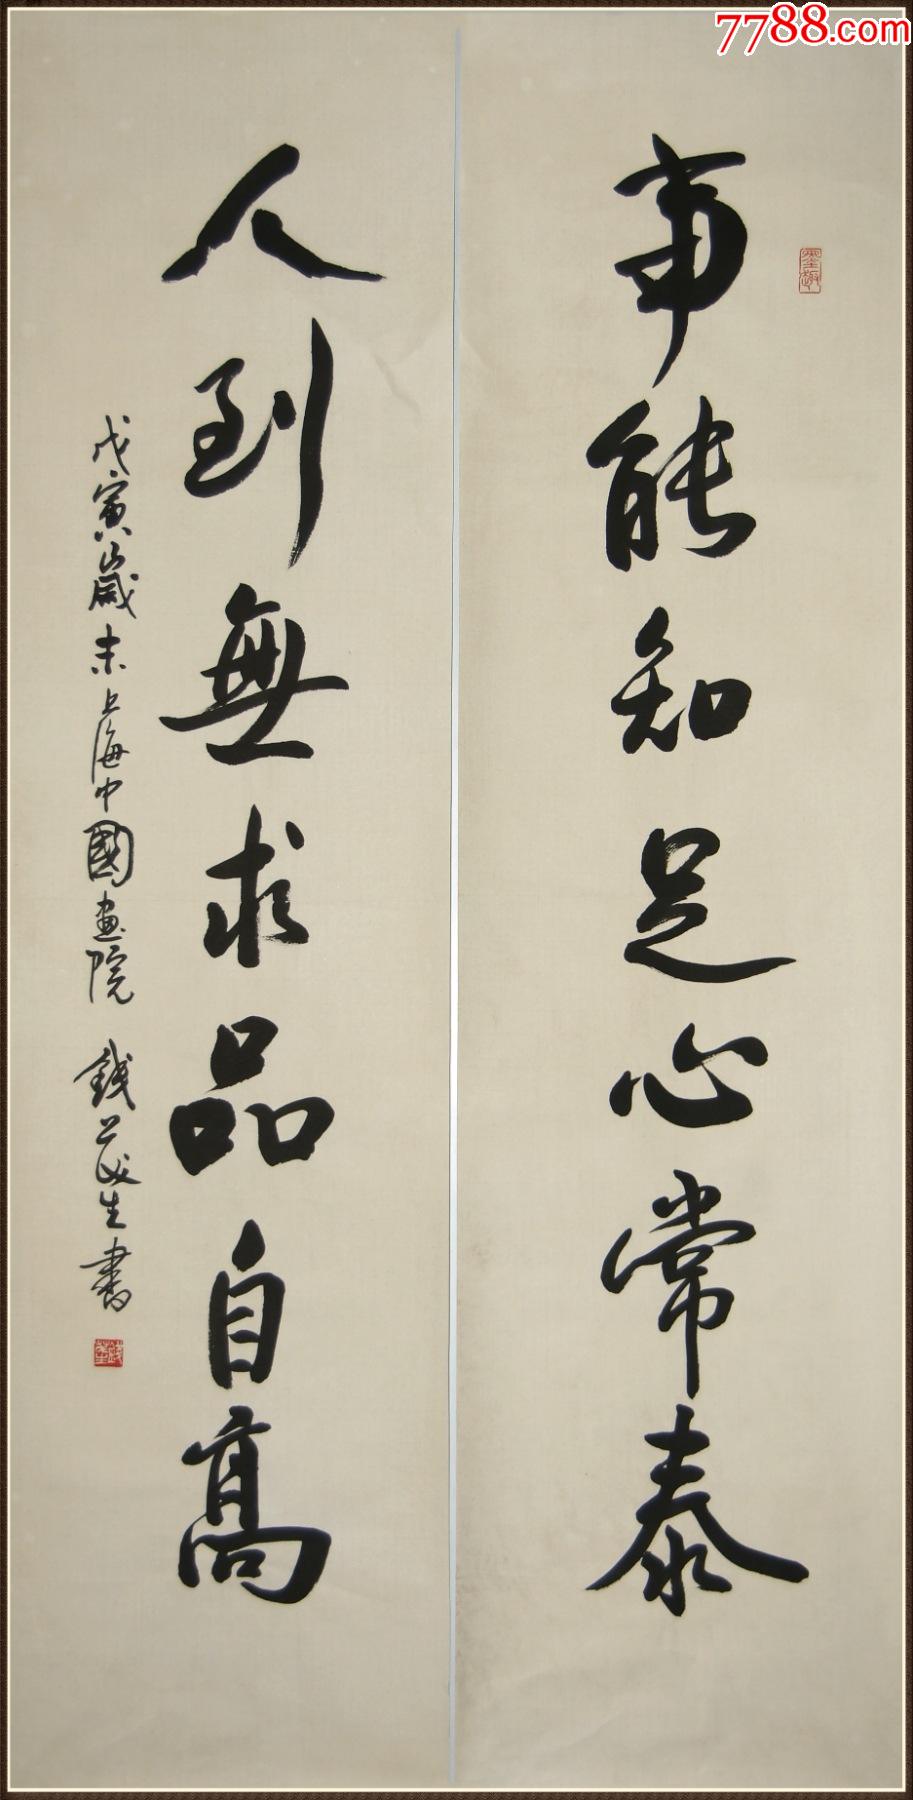 7788.com
事能知足心常泰
人到無求品自高
戊寅歲末上海中國画院 錢茂生書
墨趣